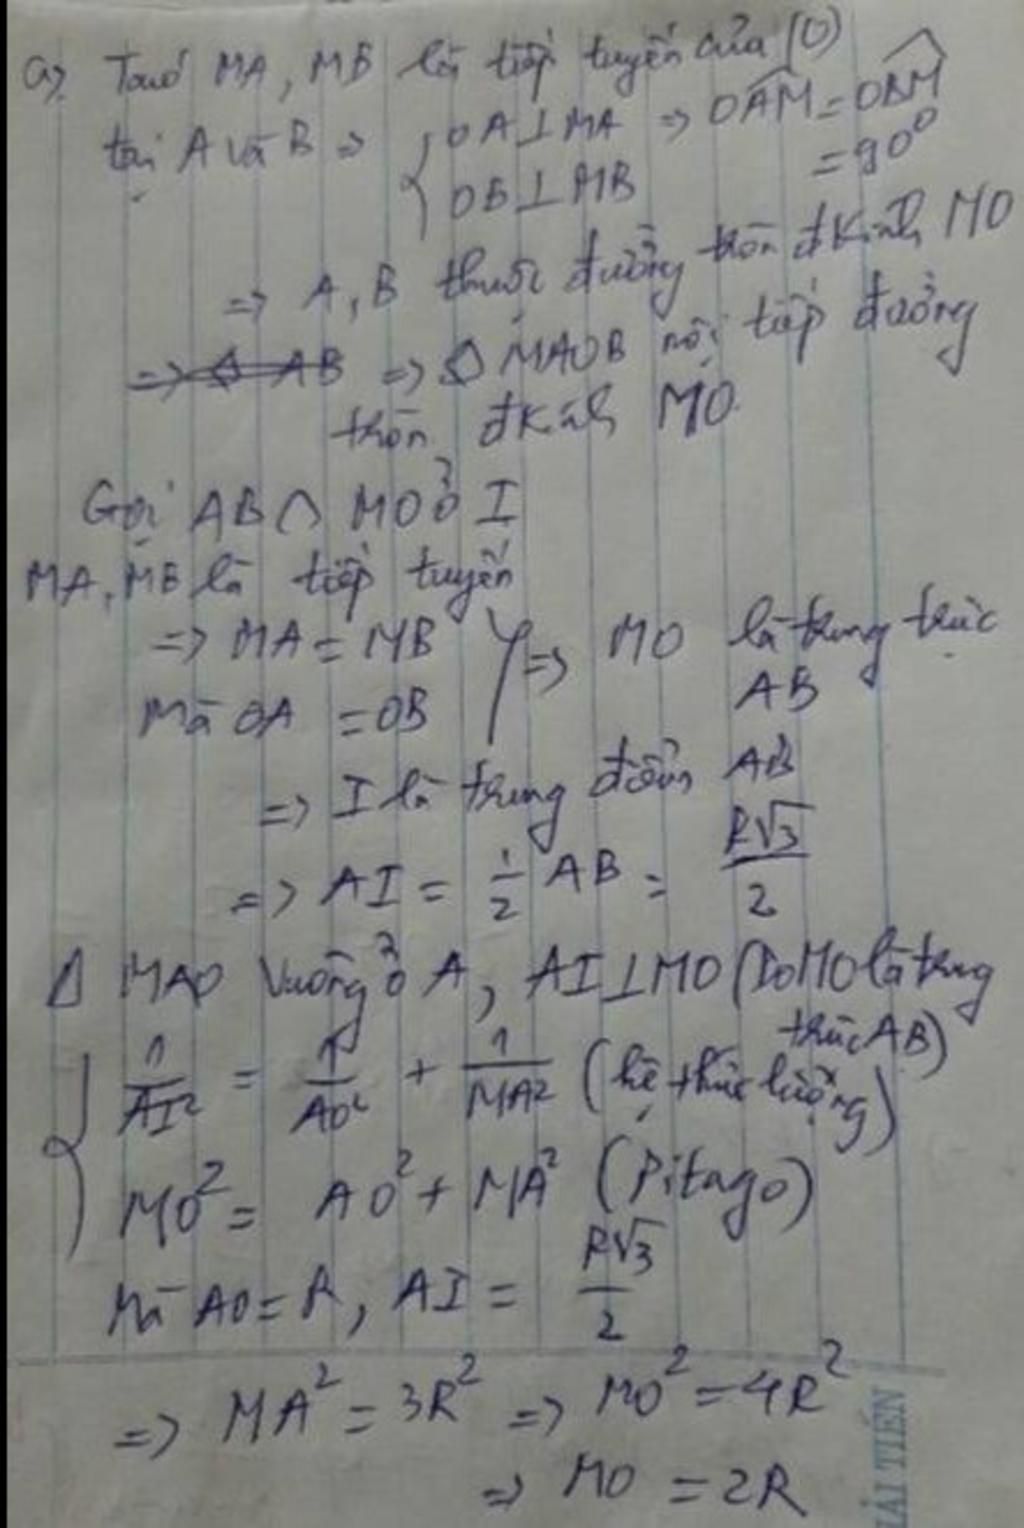 a) Ta có MA, MB là tiếp tuyến của (O)
tại A và B => { OA⊥MA => OÂM = OB̂M
OB⊥MB = 90⁰
=> A, B thuộc đường tròn đkính MO
=> ◇ AB => ◇ MAOB nội tiếp đường
tròn đkính MO.
Gọi AB ∩ MO ở I
MA, MB là tiếp tuyến
=> MA = MB } => MO là trung trực
Mà OA = OB AB
=> I là trung điểm AB
=> AI = 1/2 AB = R√3/2
Δ MAO vuông ở A, AI⊥MO (Do MO là trung
trực AB)
{ 1/AI² = 1/AO² + 1/MA² (hệ thức lượng)
MO² = AO² + MA² (Pitago)
Mà AO = R, AI = R√3/2
=> MA² = 3R² => MO² = 4R²
=> MO = 2R
HẢI TIẾN